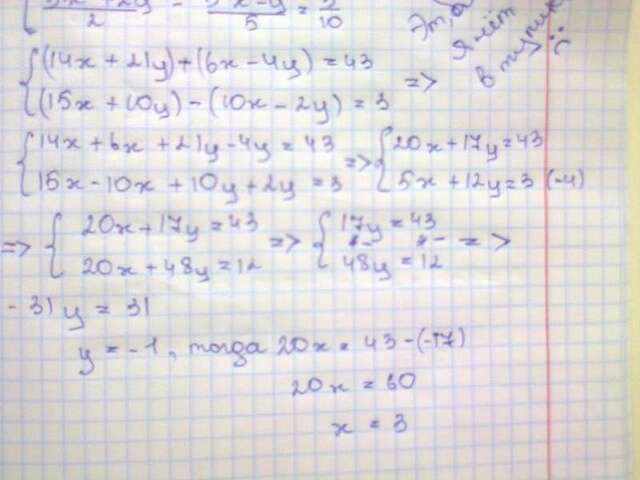 3x + 2y / 2 - 5x - y / 5 = 3 / 10
{ (14x + 21y) + (6x - 4y) = 43
(15x + 10y) - (10x - 2y) = 3 =>
{ 14x + 6x + 21y - 4y = 43
15x - 10x + 10y + 2y = 3 => { 20x + 17y = 43
5x + 12y = 3 (-4)
=> { 20x + 17y = 43
20x + 48y = 12 => { 17y = 43
48y = 12 =>
- 31y = 31
y = -1, тогда 20x = 43 - (-17)
20x = 60
x = 3
в тупик